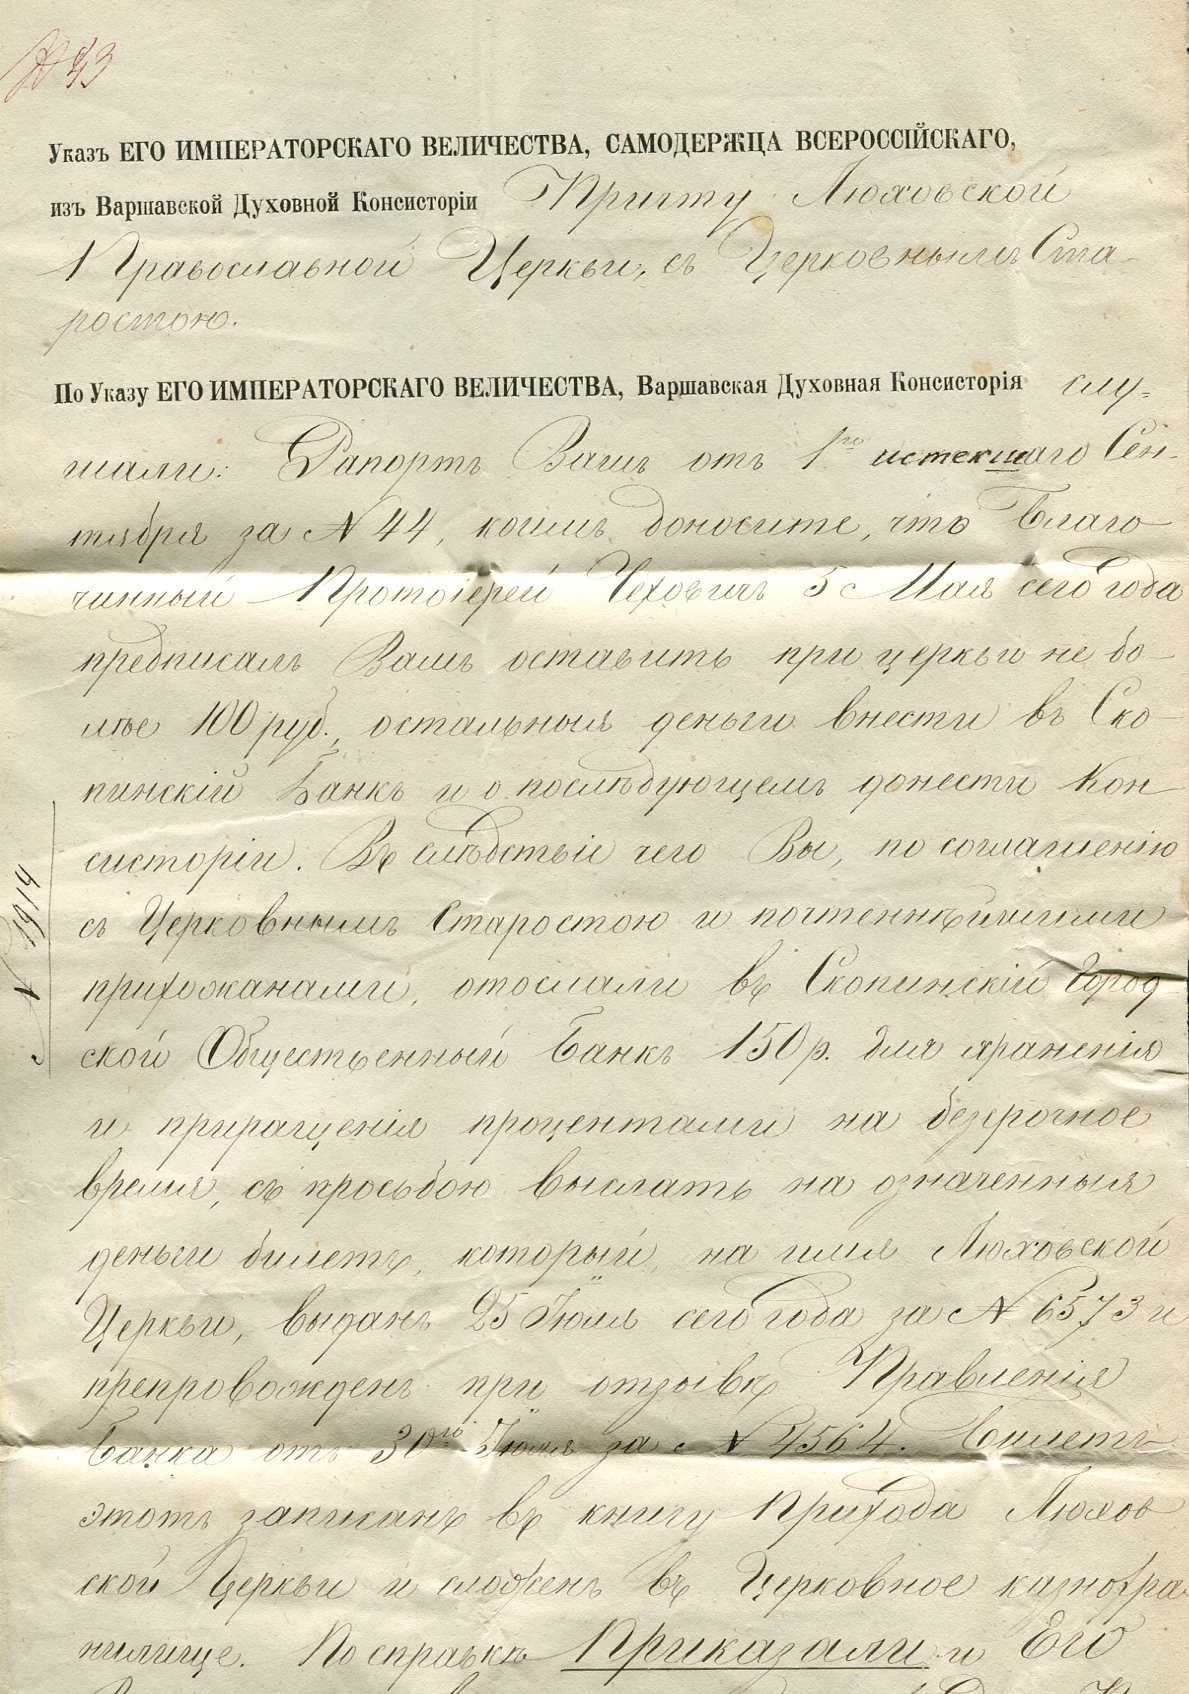 № 43
Указъ ЕГО ИМПЕРАТОРСКАГО ВЕЛИЧЕСТВА, САМОДЕРЖЦА ВСЕРОССІЙСКАГО,
изъ Варшавской Духовной Консисторіи Причту Люховской
Православной Церкви, съ Церковнымъ Ста-
ростою.
По Указу ЕГО ИМПЕРАТОРСКАГО ВЕЛИЧЕСТВА, Варшавская Духовная Консисторія слу-
шали: Рапортъ Вашъ отъ 1го истекшаго Сен-
тября за № 44, коимъ доносите, что Благо-
чинный Протоіерей Чеховичъ 5 Мая сего года
предписалъ Вамъ оставить при церкви не бо-
лѣе 100 руб., остальныя деньги внести въ Ско-
пинскій Банкъ и о послѣдующемъ донести Кон-
систоріи. Въ слѣдствіи чего Вы, по соглашенію
съ Церковнымъ Старостою и почтеннѣйшими
прихожанами, отослали въ Скопинскій Город-
ской Общественный Банкъ 150 р. для храненія
и приращенія процентами на безсрочное
время, съ просьбою выслать на означенныя
деньги билетъ, который, на имя Люховской
Церкви, выданъ 25 Іюля сего года за № 6573 и
препровожденъ при отзывѣ Правленія
Банка отъ 30го Іюля за № 4564. Билетъ
этотъ записанъ въ книгу Прихода Люхов
ской Церкви и сложенъ въ Церковное казнохра-
нилище. По справкѣ Приказали и Его
№ 1914